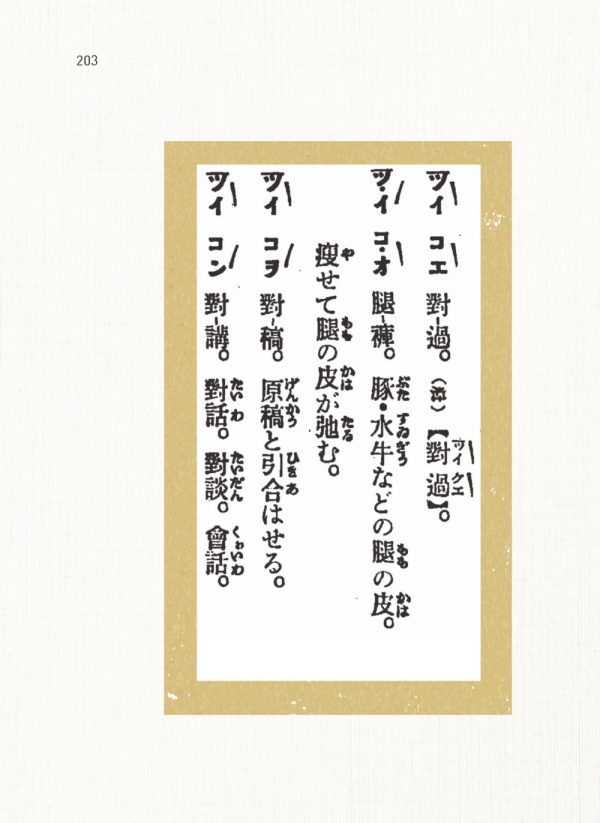 203
ツイ コエ 對-過。（漳）【對過】。
ツ・イ コ・オ 腿-褲。 豚・水牛などの腿の皮。
瘦せて腿の皮が弛む。
ツイ コヲ 對-稿。 原稿と引合はせる。
ツイ コン 對-講。 對話。對談。會話。